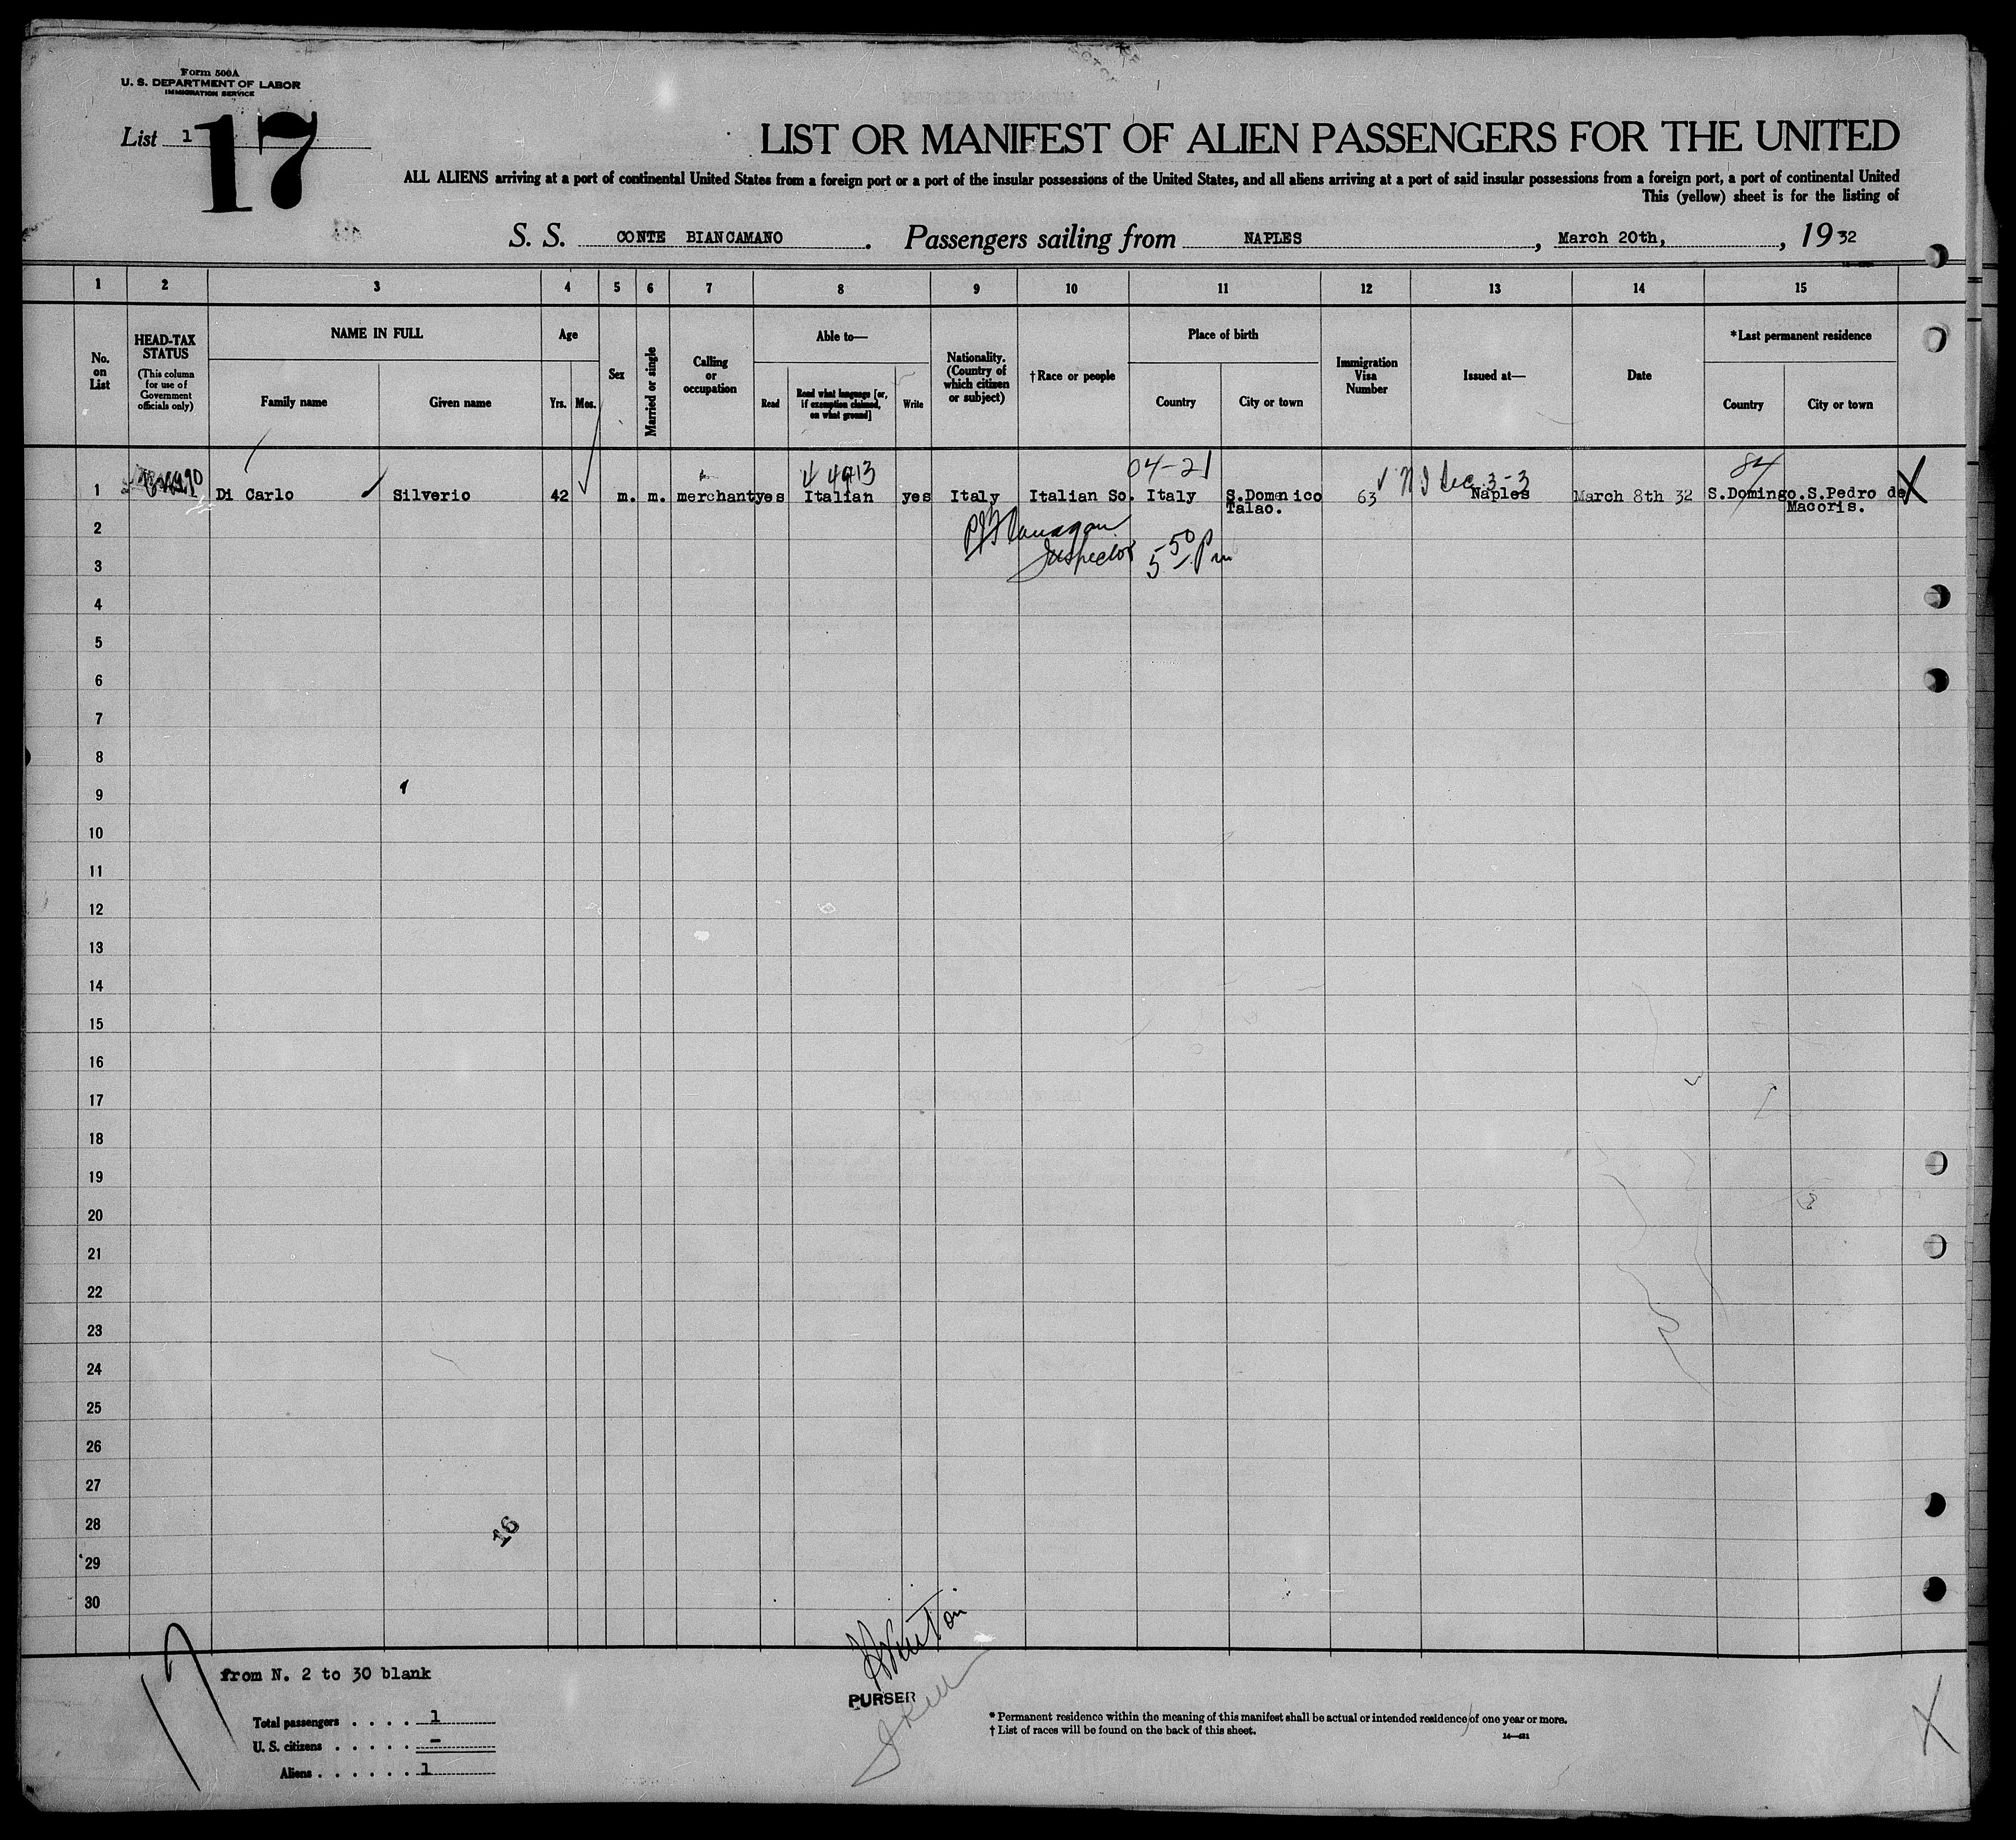 Form 500A
U. S. DEPARTMENT OF LABOR
IMMIGRATION SERVICE
List 1
17
LIST OR MANIFEST OF ALIEN PASSENGERS FOR THE UNITED
ALL ALIENS arriving at a port of continental United States from a foreign port or a port of the insular possessions of the United States, and all aliens arriving at a port of said insular possessions from a foreign port, a port of continental United
This (yellow) sheet is for the listing of
S. S. CONTE BIANCAMANO. Passengers sailing from NAPLES, March 20th, , 1932
1 2 3 4 5 6 7 8 9 10 11 12 13 14 15
No. on List
HEAD-TAX STATUS
(This column for use of Government officials only)
NAME IN FULL
Family name
Given name
Age
Yrs.
Mos.
Sex
Married or single
Calling or occupation
Able to—
Read
Read what language [or, if exemption claimed, on what ground]
Write
Nationality. (Country of which citizen or subject)
†Race or people
Place of birth
Country
City or town
Immigration Visa Number
Issued at—
Date
*Last permanent residence
Country
City or town
04-21
84
1 Di Carlo Silverio 42 m. m. merchant yes Italian yes Italy Italian So. Italy S.Domenico Talao. 63 Naples March 8th 32 S.Domingo. S.Pedro de Macoris. X
2
Inspector 5 50 Pm
3
4
5
6
7
8
9
10
11
12
13
14
15
16
17
18
19
20
21
22
23
24
25
26
27
28
16
29
30
17
from N. 2 to 30 blank
PURSER
Total passengers . . . . 1
U. S. citizens . . . . . -
Aliens . . . . . . 1
* Permanent residence within the meaning of this manifest shall be actual or intended residence of one year or more.
† List of races will be found on the back of this sheet.
X